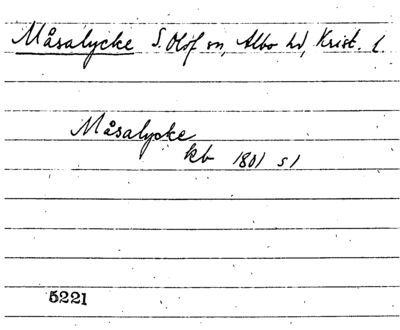 Måsalycke S. Olof sn, Albo hd, Krist. l.
Måsalycke
kb 1801 s1
5221